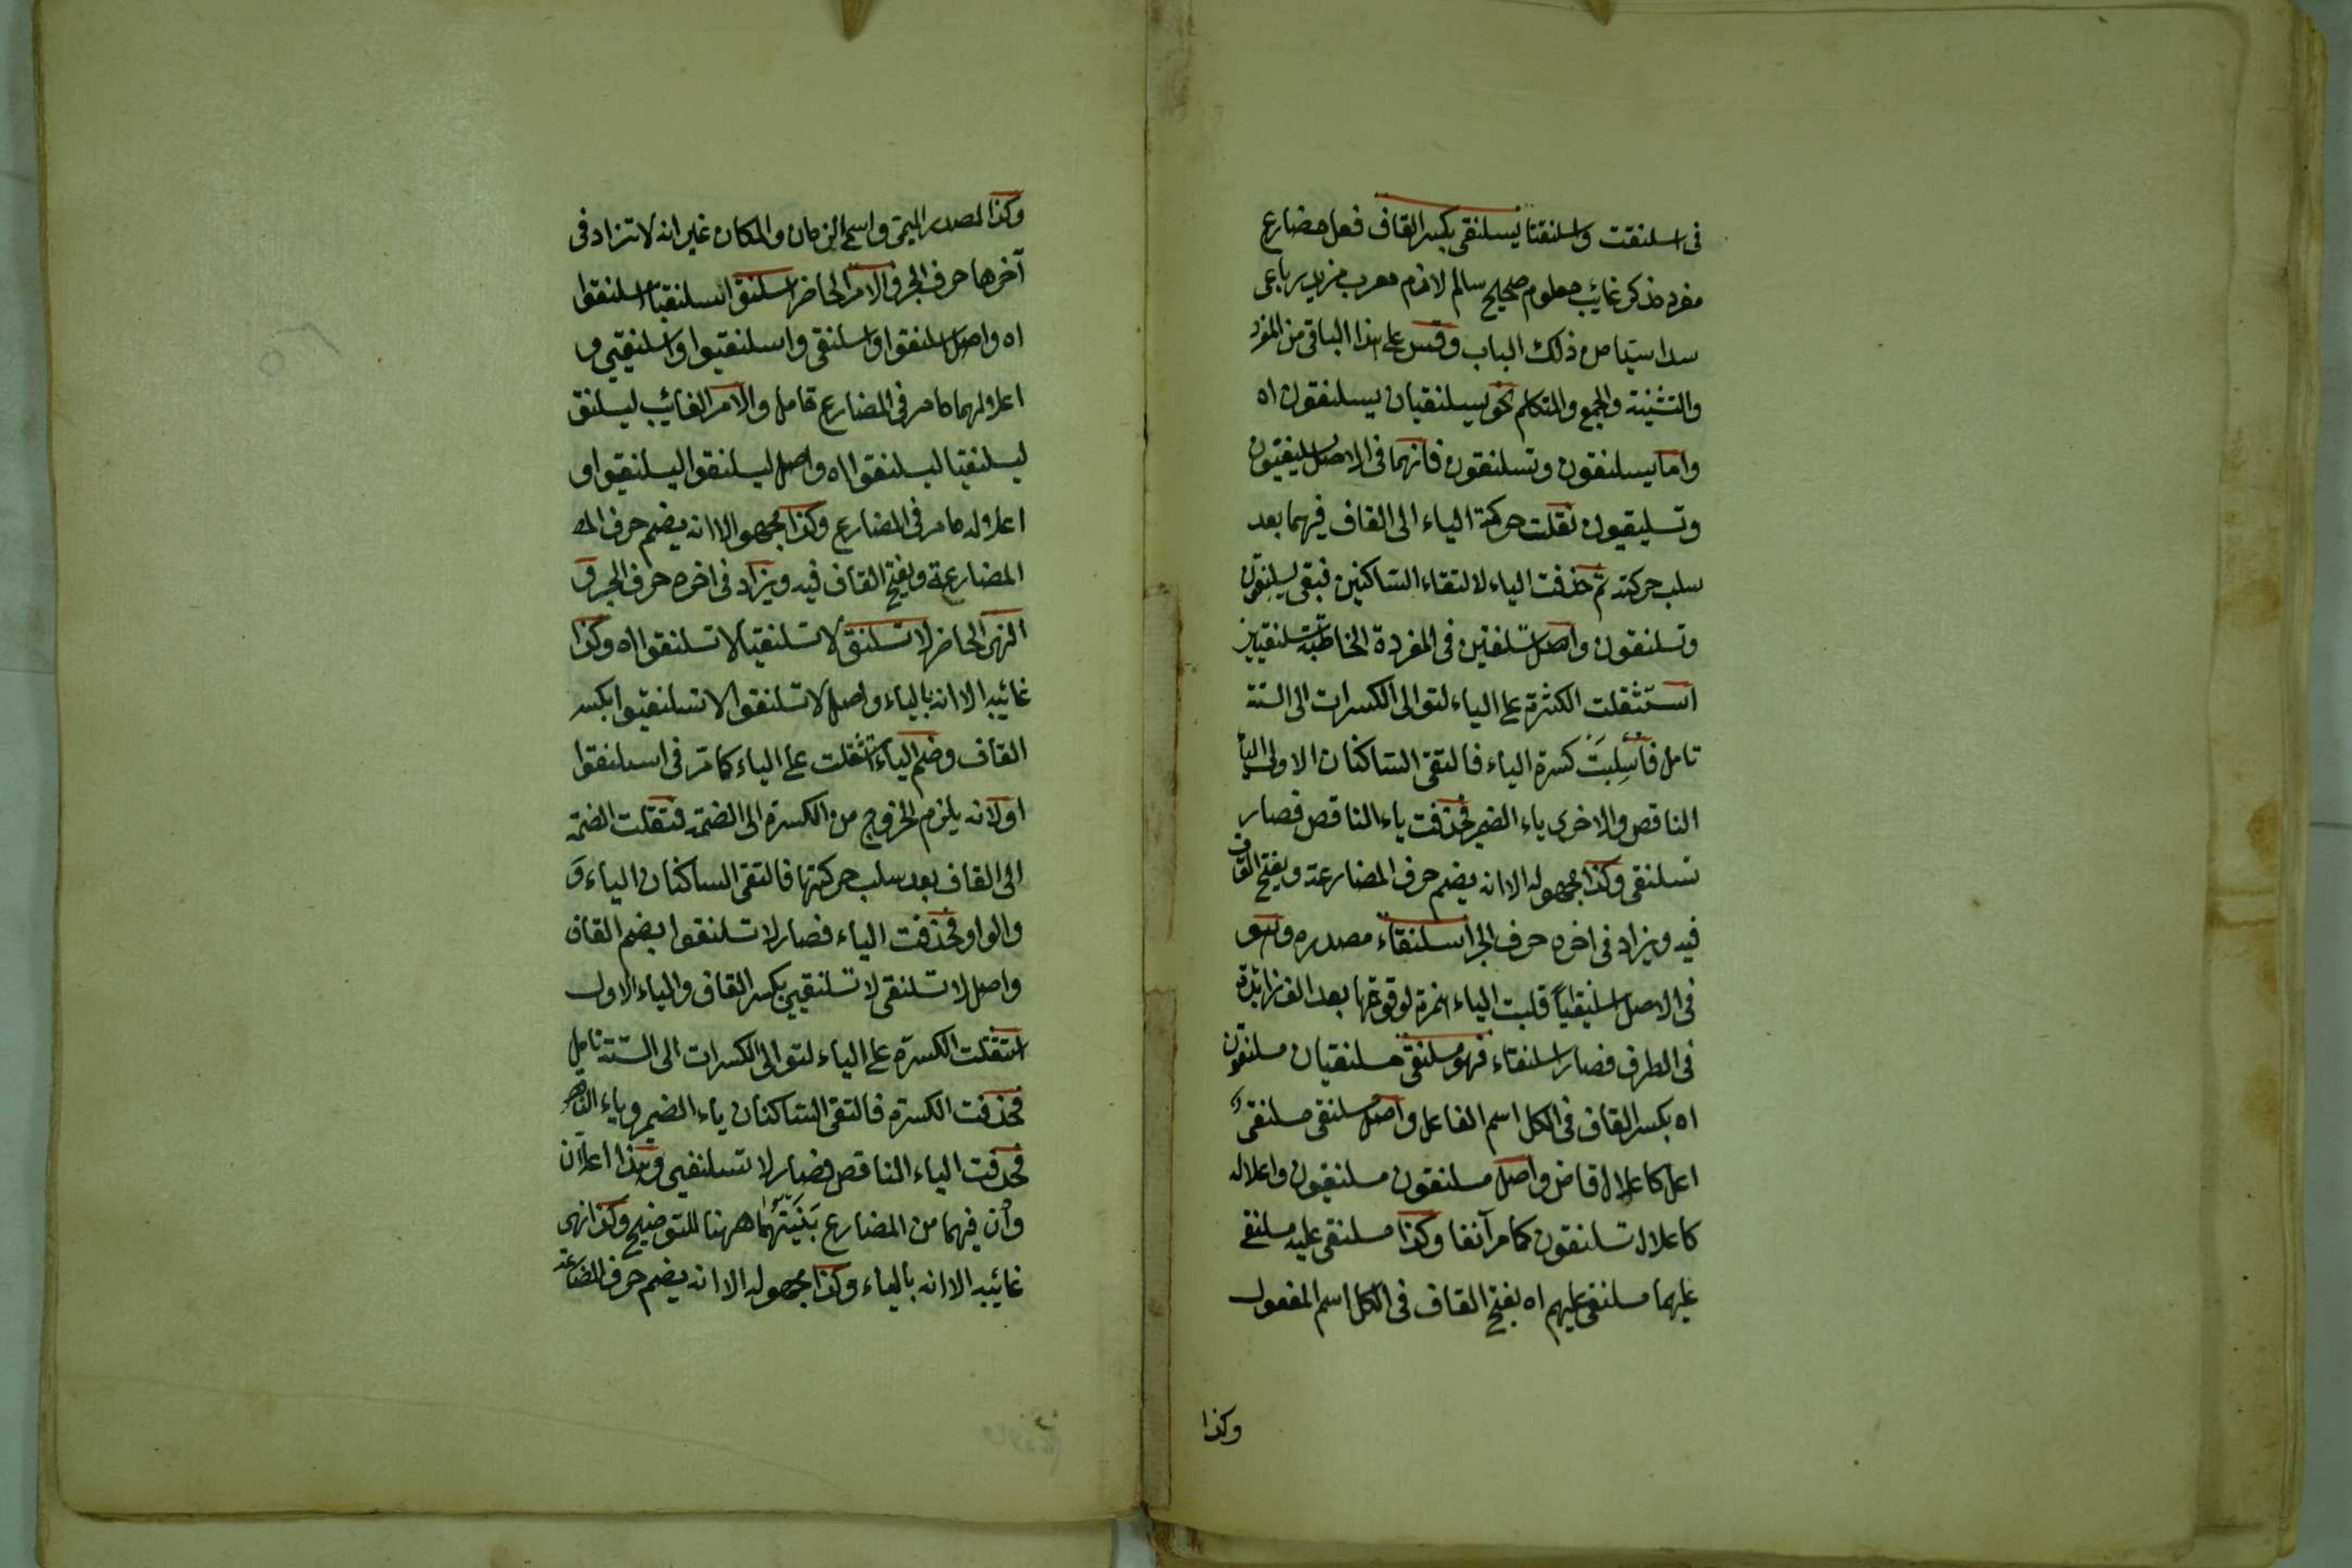 في اسلنقت واسلنقتا يسلنقي بكسر القاف فعل مضارع
مفرد مذكر غائب معلوم صحيح سالم لازم معرب مزيد رباعي
سداسيا من ذلك الباب وقس على هذا الباقي من المفرد
والتثنية والجمع والمتكلم نحو يسلنقيان يسلنقون اه
واما يسلنقون وتسلنقون فانهما في الاصل يسليقيون
وتسليقيون نقلت حركة الياء الى القاف فيهما بعد
سلب حركته ثم حذفت الياء لالتقاء الساكنين فبقي يسلنقون
وتسلنقون واصل تسلنقين في المفردة المخاطبة تسلنقيين
استثقلت الكثرة على الياء لتوالى الكسرات الى الستة
تامل فأُسلِبَت كسرة الياء فالتقى الساكنان الاولى الياء
الناقص والاخرى ياء الضمير فحذفت ياء الناقص فصار
تسلنقي وكذا مجهوله الا انه يضم حرف المضارعة ويفتح القاف
فيه ويزاد في اخره حرف الجر اسلنقاء مصدره وهو
في الاصل اسلنيقيا قلبت الياء همزة لوقوعها بعد الف زائدة
في الطرف فصار اسلنقاء فهو مسلنقي مسلنقيان مسلنقون
اه بكسر القاف في الكل اسم الفاعل واصل مسلنقي مسلنقي
اعل كاعلال قاض واصل مسلنقون مسلنقيون واعلاله
كاعلال تسلنقون كما مر آنفا وكذا مسلنقي عليه مسلنقي
عليهما مسلنقي عليهم اه بفتح القاف في الكل اسم المفعول
وكذا
وكذا المصدر الميمي واسمي الزمان والمكان غير انه لا تزاد في
آخرها حرف الجر والامر الحاضر اسلنق اسلنقيا اسلنقوا
اه واصل اسلنقوا واسلنقي واسلنقيوا واسلنقيي و
اعلالهما ما مر في المضارع تامل والامر الغائب ليسلنق
ليسلنقيا ليسلنقوا اه واصل ليسلنقوا ليسلنقيوا و
اعلاله ما مر في المضارع وكذا مجهوله الا انه يضم حرف المض
المضارعة ويفتح القاف فيه ويزاد في اخره حرف الجر و
النهي الحاضر لا تسلنق لا تسلنقيا لا تسلنقوا اه وكذا
غائبه الا انه بالياء واصل لا تسلنقوا لا تسلنقيوا بكسر
القاف وضم الياء اثقلت على الياء كما مر في اسلنقوا
اولانه يلزم الخروج من الكسرة الى الضمة فنقلت الضمة
الى القاف بعد سلب حركتها فالتقى الساكنان الياء و
والواو فحذفت الياء فصار لا تسلنقوا بضم القاف
واصل لا تسلنقي لا تسلنقيي بكسر القاف والياء الاول
استثقلت الكسرة على الياء لتوالى الكسرات الى الستة تامل
فحذفت الكسرة فالتقى الساكنان ياء الضمير وياء الناقص
فحذفت الياء الناقص فصار لا تسلنقي وهذا اعلالان
وان فيهما من المضارع بَيَّنتهما ههنا للتوضيح وكذا نهي
غائبه الا انه بالياء وكذا مجهوله الا انه يضم حرف المضارعة